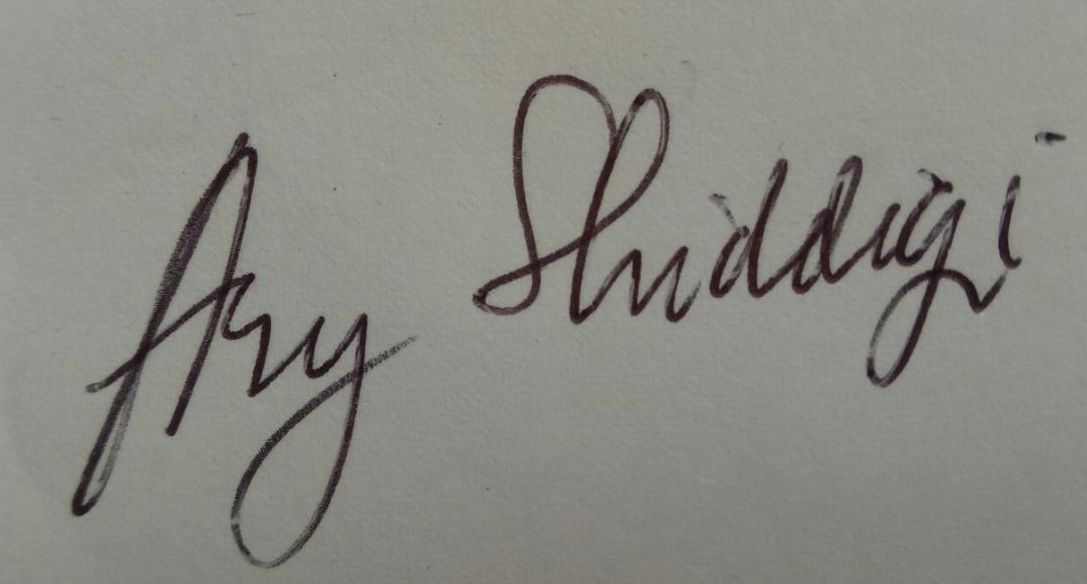 Ary Shiddiqi